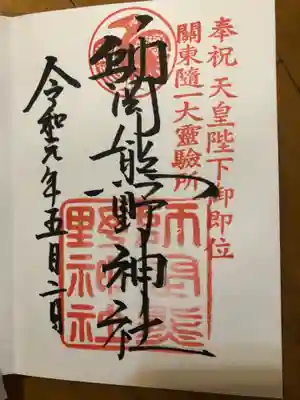 奉祝 天皇陛下御即位
關東隨一大靈驗所
師岡熊野神社
令和元年五月二日
師岡熊野神社